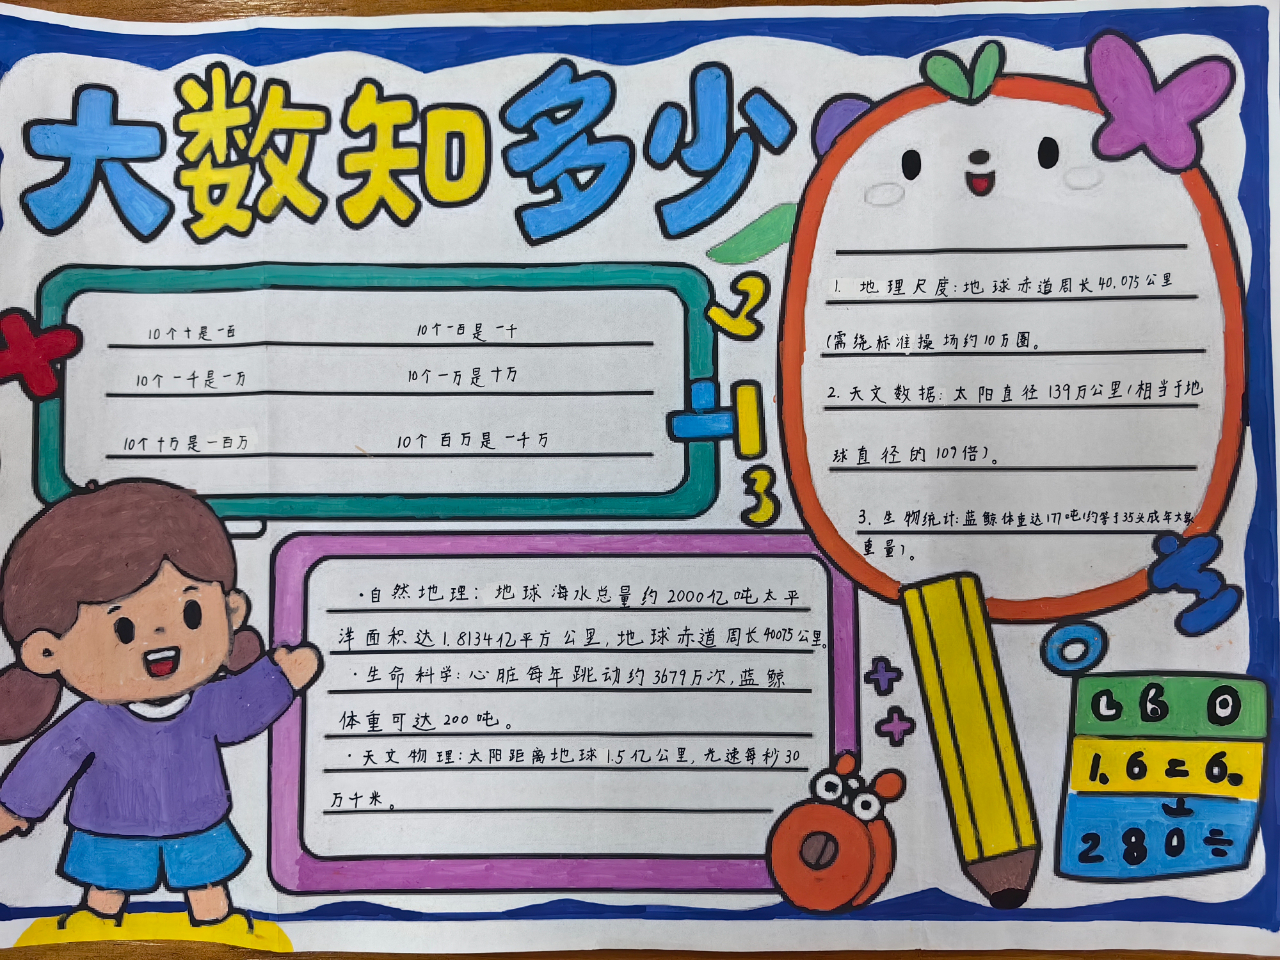 大数知多少
10个十是一百 10个一百是一千
10个一千是一万 10个一万是十万
10个十万是一百万 10个百万是一千万
1. 地理尺度:地球赤道周长40.075公里
(需绕标准操场约10万圈。
2. 天文数据:太阳直径139万公里(相当于地
球直径的109倍)。
3. 生物统计:蓝鲸体重达177吨(约等于35头成年大象
重量)。
·自然地理:地球海水总量约2000亿吨太平
洋面积达1.8134亿平方公里,地球赤道周长40075公里。
·生命科学:心脏每年跳动约3679万次,蓝鲸
体重可达200吨。
·天文物理:太阳距离地球1.5亿公里,光速每秒30
万千米。
2
1
3
1.6=6.
280÷